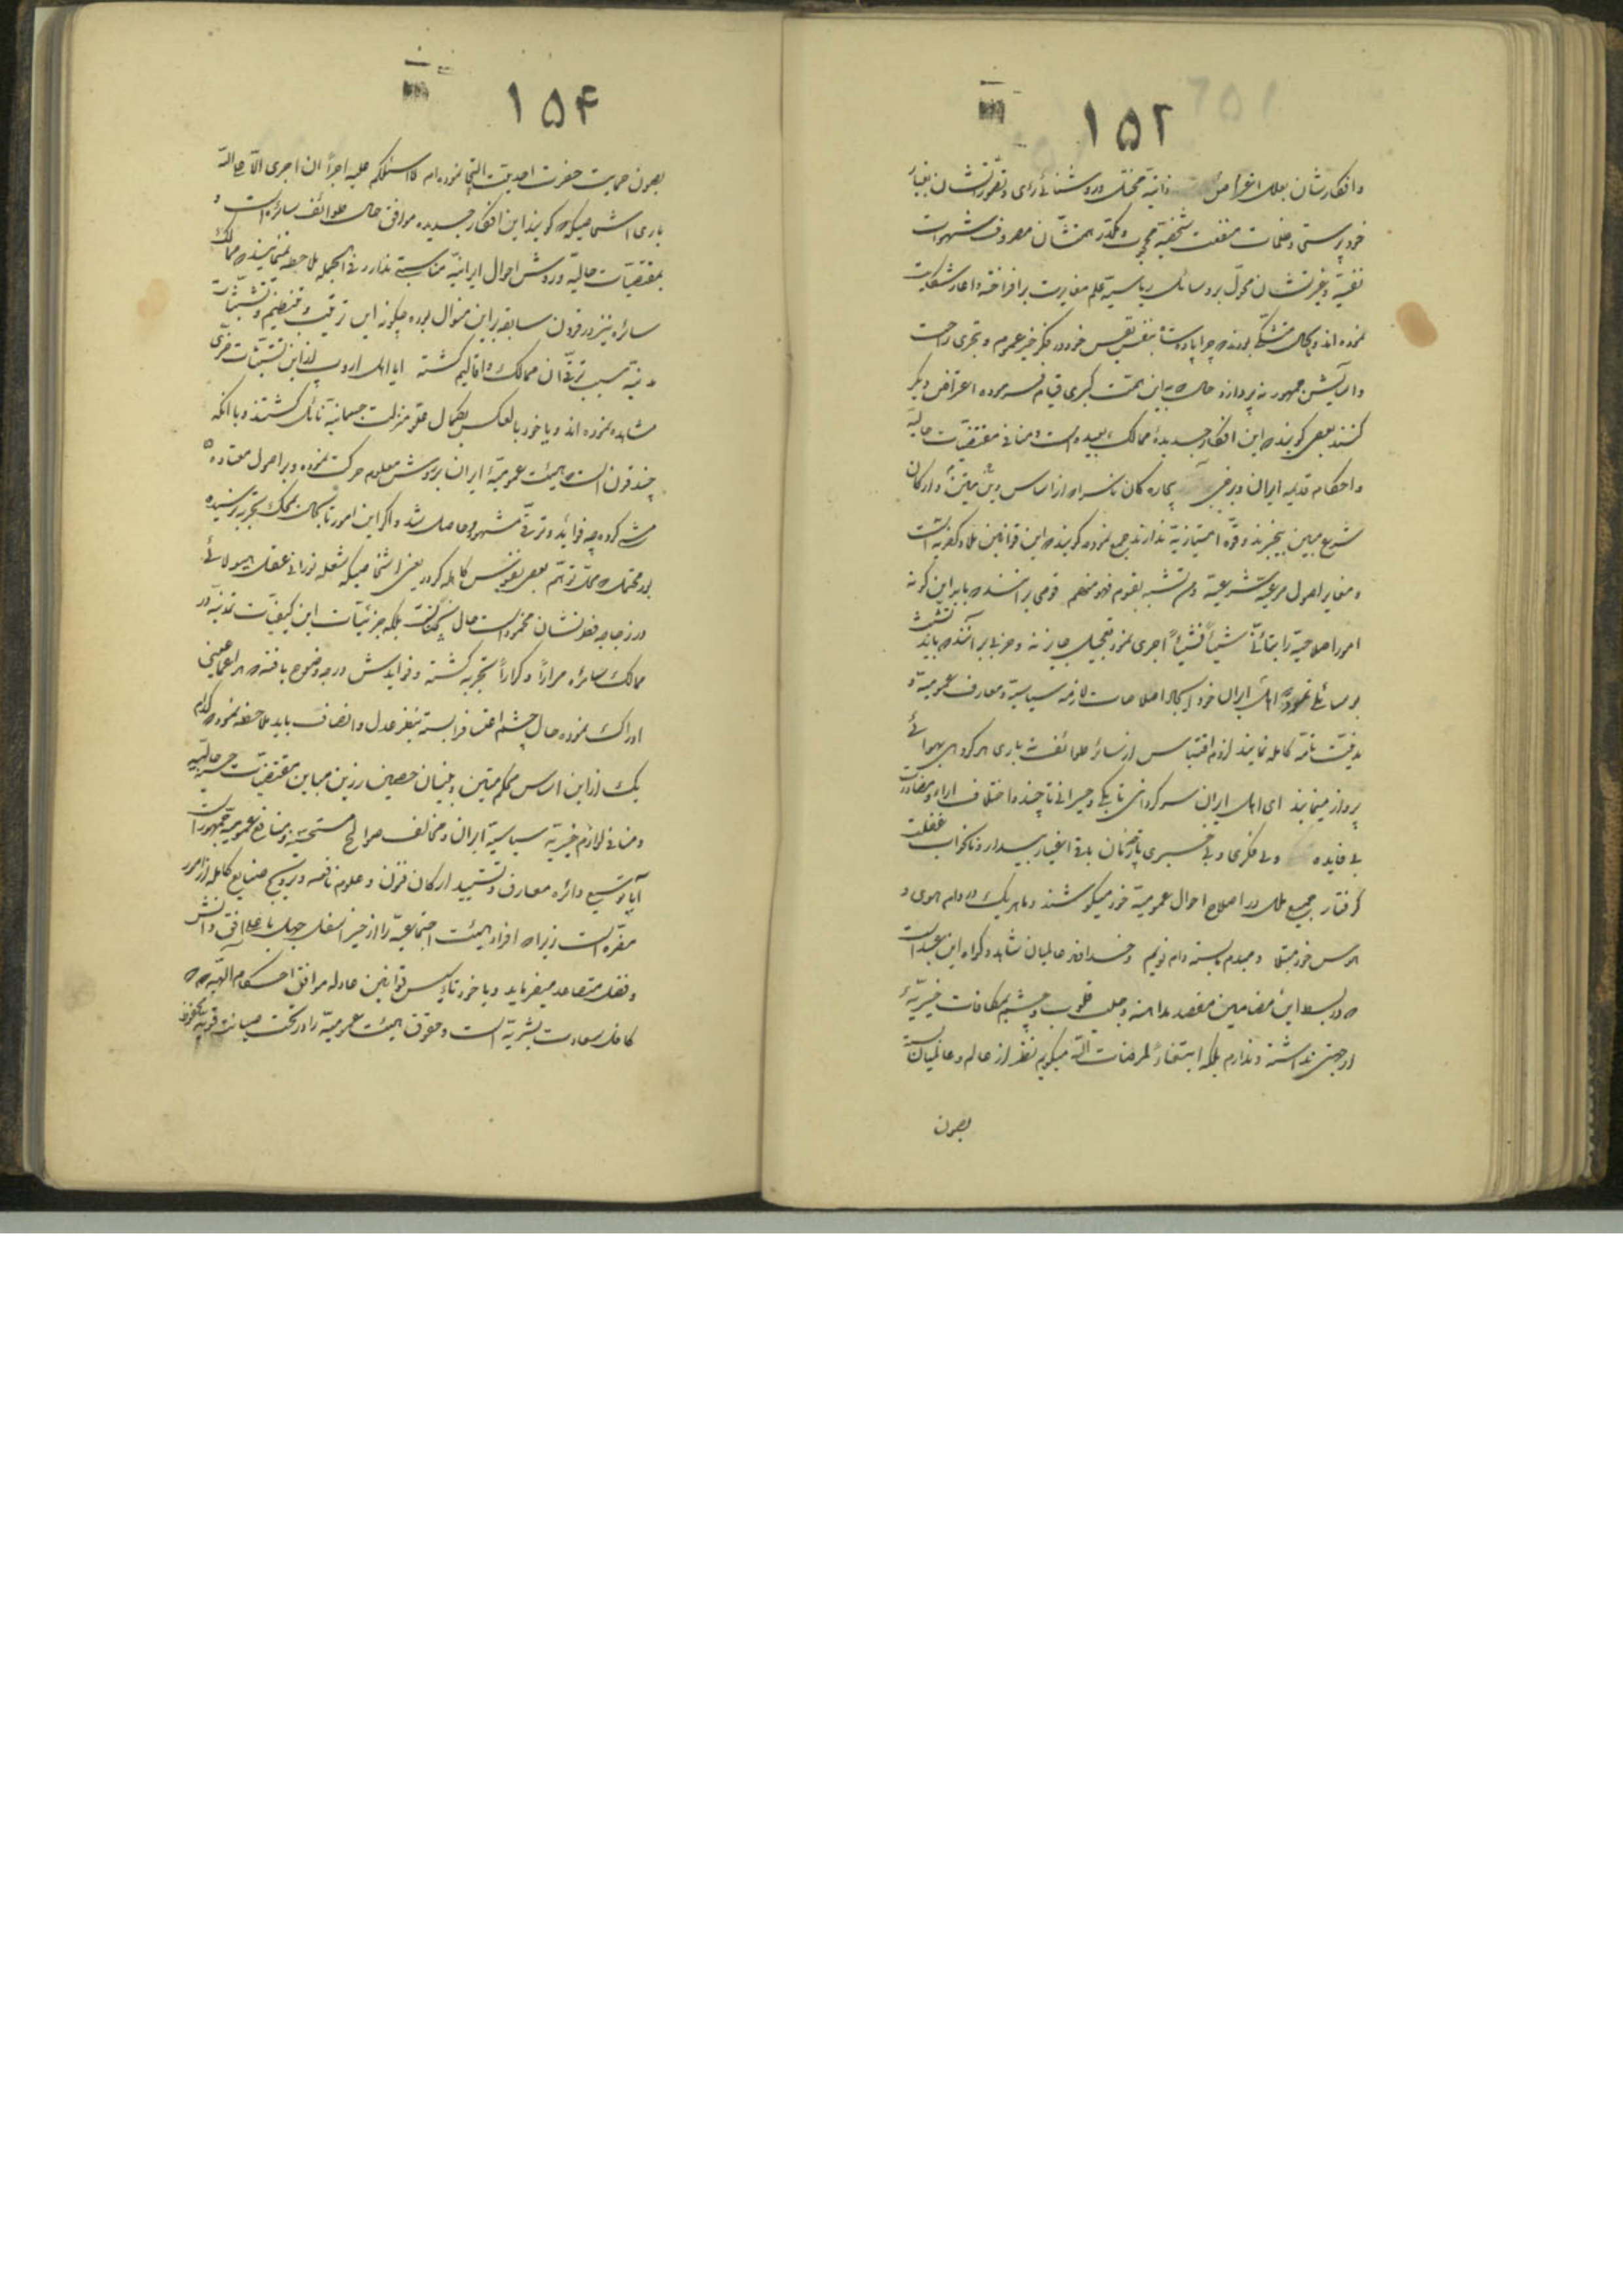 ۱۵۲
وافکارشان بعلل اغراض ذاتیه مختل و روشنائی رأی و تصوّراتشان بغبار
خودپرستی و ظلمات منفعت شخصیّه محجوب و مکدّر همّتشان مصروف شهوات
نفسیّه و غیرتشان محوّل بر وسائل ریاسیّه علم مغایرت برافراخته و آغاز شکایت
نموده‌اند و بحال متشکّی بودند که چرا پادشاه بنفس نفیس خود در فکر خیر عموم و تحرّی راحت
و آسایش جمهور نه‌پردازد حال که باین همّت کبری قیام فرموده اعتراض دیگر
کنند بعضی گویند که این افکار جدیدهٔ ممالک بعیده است و منافی مقتضیّات حالیّه
و احکام قدیمه ایران و برخی بیچاره‌گان ناس را که از اساس دین متین و ارکان
شرع مبین بیخبرند و قوّه امتیازیّه ندارند جمع نموده گویند که این قوانین بلاد کفریّه است
و مغایر اصول مرعیّه شرعیّه و من تشبّه بقوم فهو منهم قومی برآنند که باید این گونه
امور اصلاحیّه را بتأنّی شیئاً فشیئاً اجری نمود تعجیل جایز نه و حزبی برآنند که باید تشبّث
بوسائلی نمود که اهل ایران خود ایجاد اصلاحات لازمه سیاسیّه و معارف عمومیّه و
مدنیّت تامّه کامله نمایند لزوم اقتباس از سائر طوائف نه باری هر گروهی بهوائی
پرواز مینمایند ای اهل ایران سرگردانی تا بکی و حیرانی تا چند و اختلاف آراء و مضادّت
بی فایده و بی فکری و بی خبری تا چه زمان باقی اغیار بیدار و ما بخواب غفلت
گرفتار جمیع ملل در اصلاح احوال عمومیّه خود میکوشند و ما هر یک در دام هوی و
هوس خود مبتلا و مبدم بسته دام نویم و خداوند عالمیان شاهد و گواه این عبد است
که در بسط این مضامین مقصد مداهنه و جلب قلوب و چشم مکافات خیریّهٔ
از جهتی نداشته و ندارم بلکه ابتغاءً لمرضات اللّه میگویم نظر از عالم و عالمیان بسته
بصون
۱۵۴
بصون حمایت حضرت احدیّت التجا نموده‌ام لا اسئلکم علیه اجراً ان اجری الّا علی اللّه
باری اشخاصیکه گویند این افکار جدیده موافق حال طوائف سائره است و
بمقتضیّات حالیّه و روش احوال ایرانیّه مناسبتی ندارد فی الجمله ملاحظه نمینمایند که ممالک
سائره نیز در قرون سابقه بر این منوال بوده چگونه این ترتیب و تنظیم و تشبّثات
مدنیّه سبب ترقّی آن ممالک و اقالیم گشته ایا اهل اروپ از این تشبّثات ضرری
مشاهده نموده‌اند و یا خود بالعکس بکمال علوّ منزلت جسمانیّه نائل گشتند و یا آنکه
چند قرن است که هیئت عمومیّهٔ ایران بر روش معلوم حرکت نموده و بر اصول معتاده
مشی کرده چه فوائد و ترقّی مشهود و حاصل شد و اگر این امور تا بحال بمحک تجربه نرسیده
بود محتمل که محلّ توهّم بعضی نفوس کاهله گردد یعنی اشخاصیکه شعله نورانی عقل هیولائی
در زجاجه فطرتشان مخمود است حال نه چنانست بلکه جزئیّات این کیفیّات تمدنیّه در
ممالک سائره مراراً و کراراً تجربه گشته و فوایدش درجه وضوح یافته که هر اعمای غبی
ادراک نموده حال چشم اعتساف را بسته بنظر عدل و انصاف باید ملاحظه نمود که کدام
یک از این اساس محکم متین و بنیان حصین رزین مباین مقتضیّات حسنه حالیّه
و منافی لوازم خیریّه سیاسیّه ایران و مخالف صوالح مستحسنه و منافع عمومیّه جمهور است
آیا توسیع دائره معارف و تشیید ارکان فنون و علوم نافعه و ترویج صنایع کامله از امور
مضرّه است زیرا که افراد هیئت اجتماعیّه را از حیّز اسفل جهل باعلا افق دانش
و فضل متصاعد میفرماید و یا خود تأسیس قوانین عادله موافق احکام الهیّه که
کافل سعادت بشریّه است و حقوق هیئت عمومیّه را در تحت صیانت قویّه محفوظ